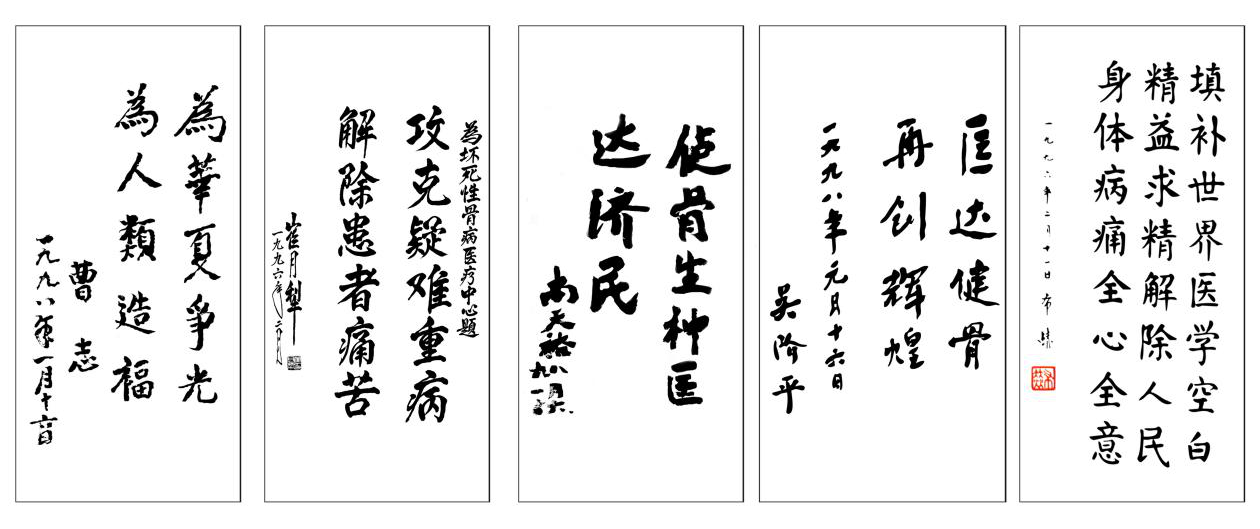 為華夏爭光
為人類造福
曹志
一九九八年一月十六日
為坏死性骨病医疗中心題
攻克疑难重病
解除患者痛苦
崔月犁
一九九六年二月
使骨生神匡
达济民
尚天裕
匡达健骨
再创辉煌
一九九八年元月十六日
吴阶平
填补世界医学空白
精益求精解除人民
身体病痛全心全意
一九九六年二月十一日 布赫